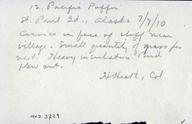 12. Pacific Puffin
St. Paul Id., Alaska 7/7/10
Crevice in face of cliff near
village. Small quantity of grass for
nest. Heavy incubation. Bird
flew out.
H Heath, Col
MVZ 3229